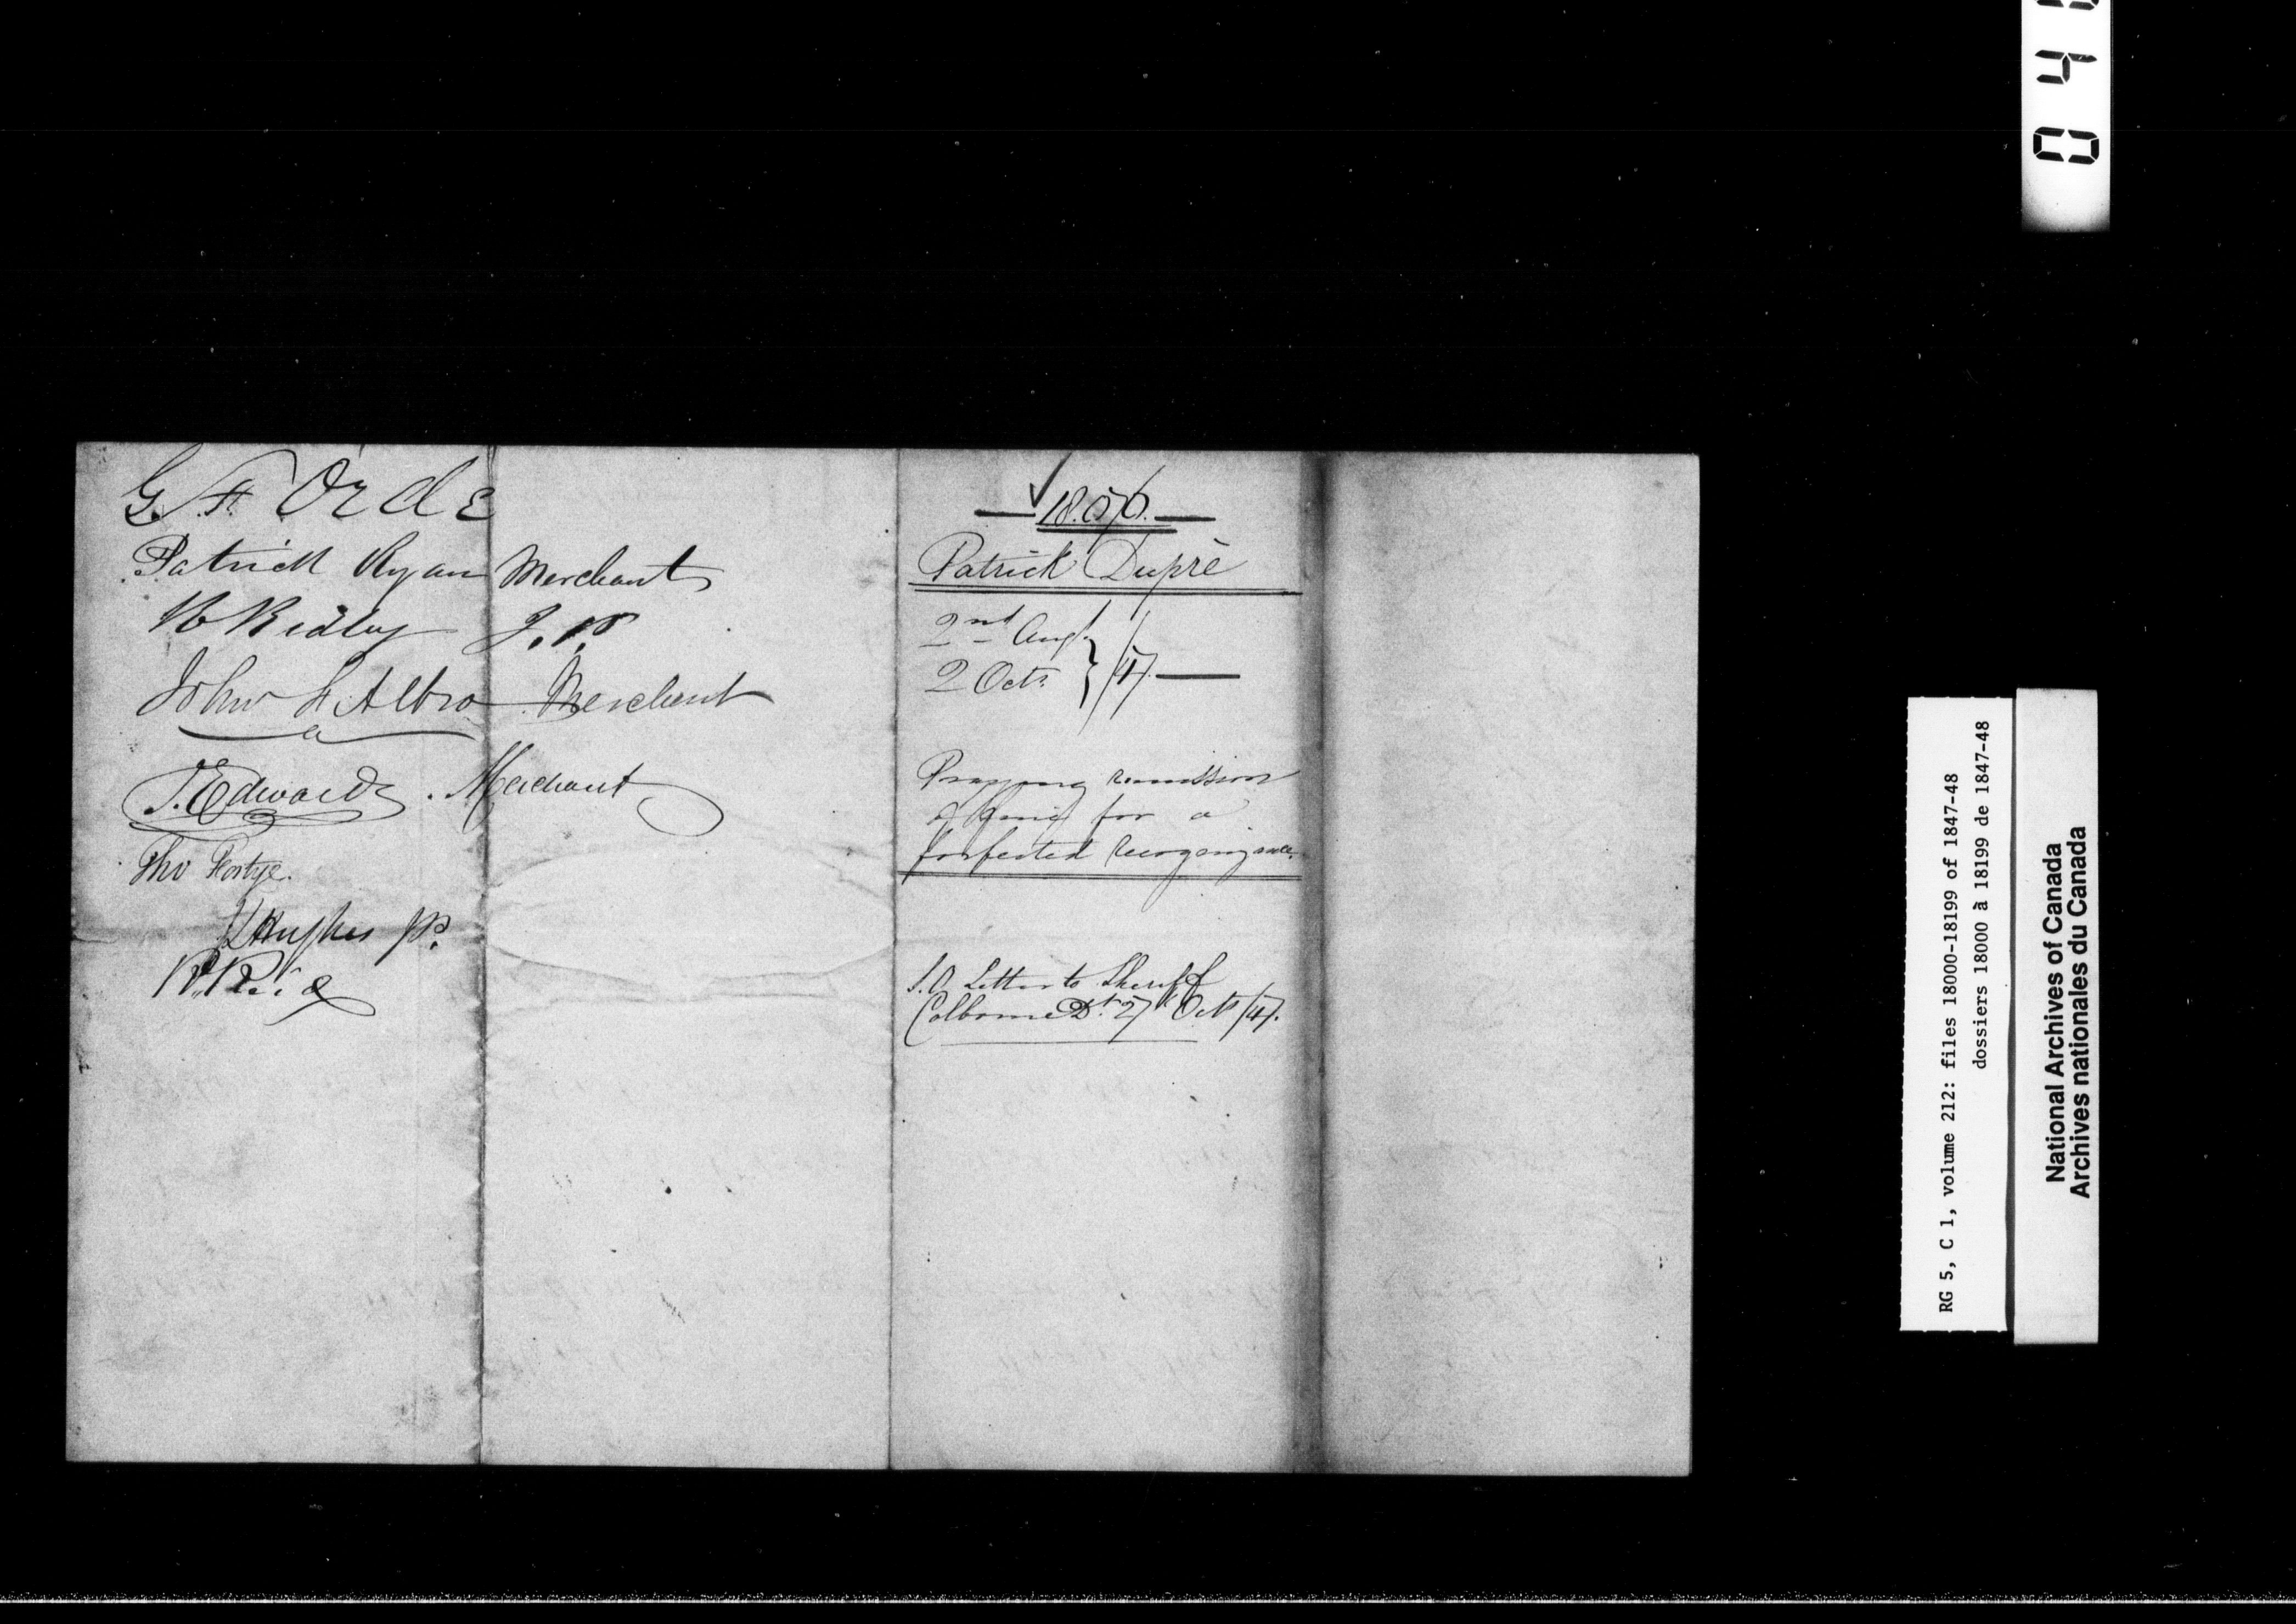 G. F. Orde
Patrick Ryan Merchant
Ridley J.P.
John L Albro Merchant
T. Edwards. Merchant
Tho Fortye.
Hughes JP.
R. Reid
18.076.
Patrick Dupré
2nd Augt.
2 Octr. } /47.
Praying remission
of fine for a
forfeited Recognizance.
Letter to Sheriff
Colborne Dt. 27 Octr /47.
RG 5, C 1, volume 212: files 18000-18199 of 1847-48
dossiers 18000 à 18199 de 1847-48
National Archives of Canada
Archives nationales du Canada
0 4